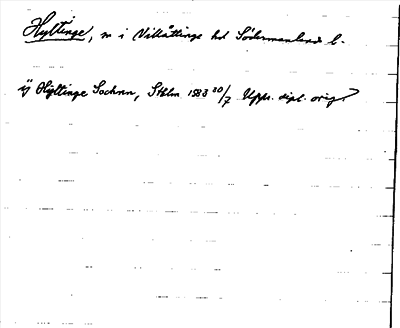 Hyltinge, sn i Villåttinge hd Södermanlands l.
ij Hyltinge Sochnn, Sthlm 1583 30/7 Upps. dipl. orig.